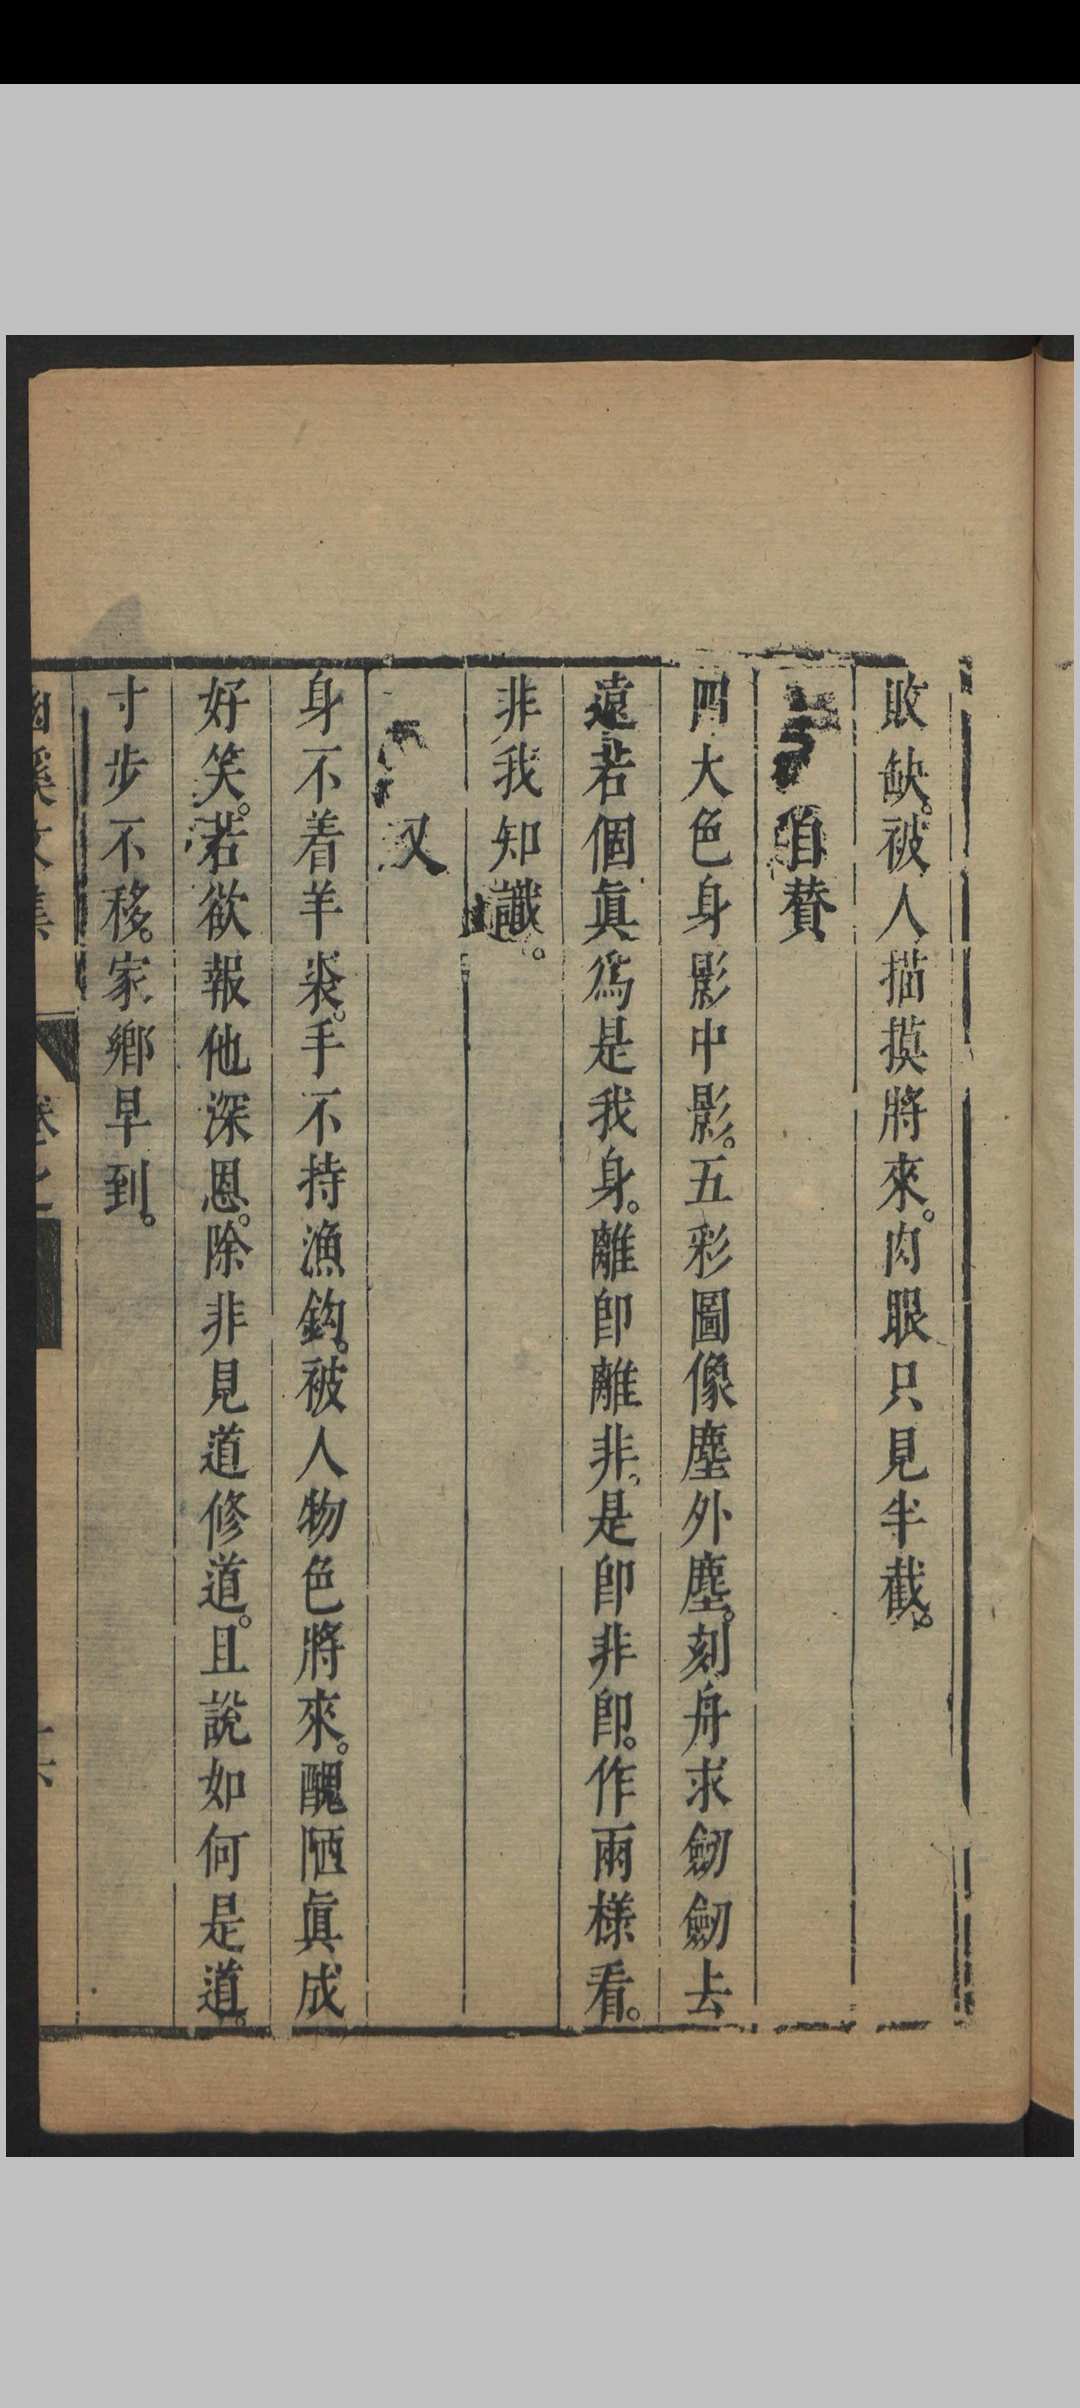 敗缺。被人描摸將來。肉眼只見半截。
自贊
四大色身影中影。五彩圖像塵外塵。刻舟求劒劒去
遠。若個眞爲是我身。離卽離非。是卽非卽。作兩樣看。
非我知識。
又
身不着羊裘。手不持漁鈎。被人物色將來。醜陋眞成
好笑。若欲報他深恩。除非見道修道。且說如何是道。
寸步不移。家鄉早到。
幽溪文集 卷之 十六